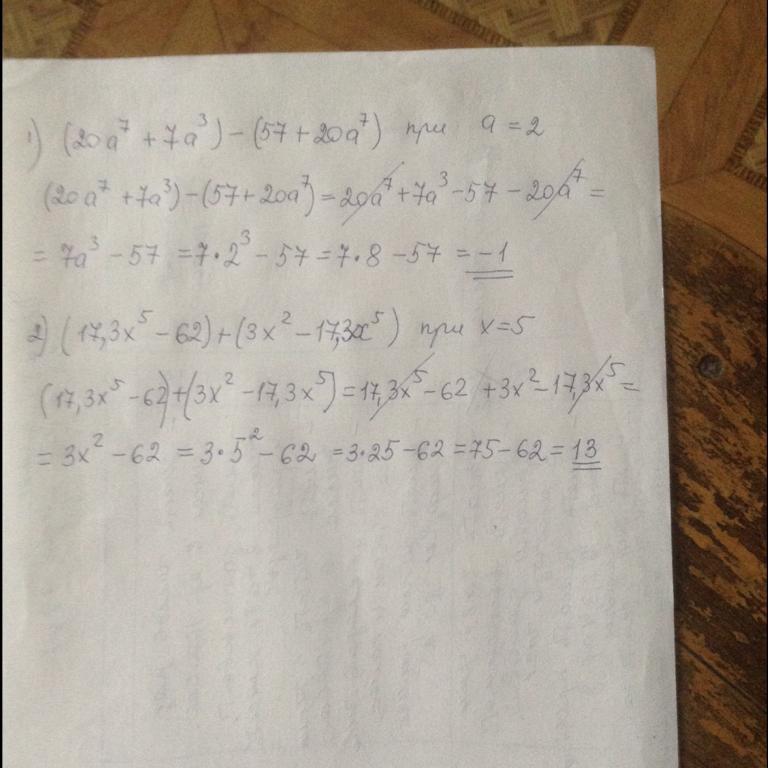 1) (20a⁷ + 7a³) − (57 + 20a⁷) при a = 2
(20a⁷ + 7a³) − (57 + 20a⁷) = 20a⁷ + 7a³ − 57 − 20a⁷ =
= 7a³ − 57 = 7·2³ − 57 = 7·8 − 57 = −1
2) (17,3x⁵ − 62) + (3x² − 17,3x⁵) при x = 5
(17,3x⁵ − 62) + (3x² − 17,3x⁵) = 17,3x⁵ − 62 + 3x² − 17,3x⁵ =
= 3x² − 62 = 3·5² − 62 = 3·25 − 62 = 75 − 62 = 13